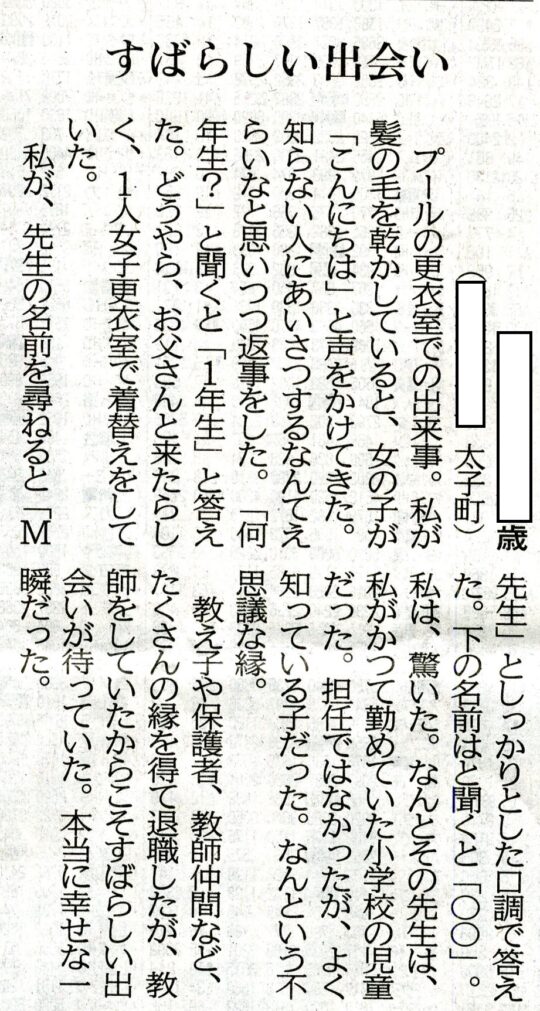 すばらしい出会い
歳
（　　太子町）
　プールの更衣室での出来事。私が
髪の毛を乾かしていると、女の子が
「こんにちは」と声をかけてきた。
知らない人にあいさつするなんてえ
らいなと思いつつ返事をした。「何
年生？」と聞くと「１年生」と答え
た。どうやら、お父さんと来たらし
く、１人女子更衣室で着替えをして
いた。
　私が、先生の名前を尋ねると「Ｍ
先生」としっかりとした口調で答え
た。下の名前はと聞くと「〇〇」。
私は、驚いた。なんとその先生は、
私がかつて勤めていた小学校の児童
だった。担任ではなかったが、よく
知っている子だった。なんという不
思議な縁。
　教え子や保護者、教師仲間など、
たくさんの縁を得て退職したが、教
師をしていたからこそすばらしい出
会いが待っていた。本当に幸せな一
瞬だった。